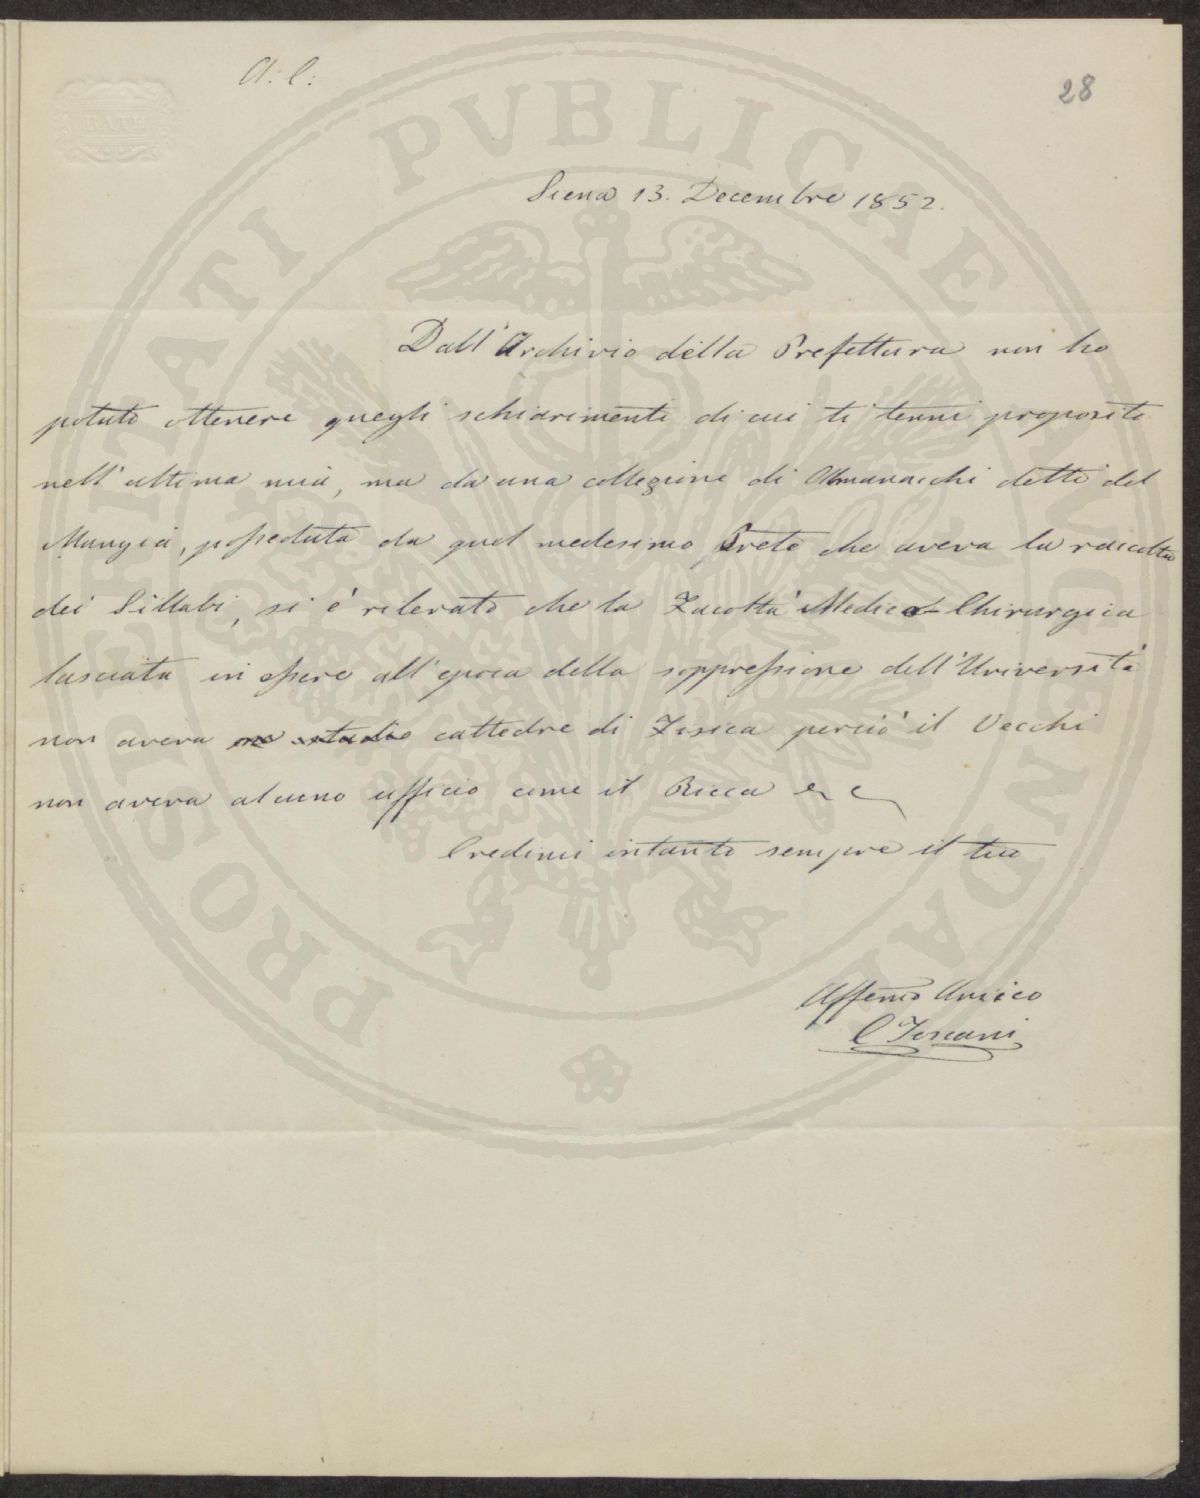 A: C:
28
BATH
Siena 13. Decembre 1852.
Dall'Archivio della Prefettura non ho
potuto ottenere quegli schiarimenti di cui ti tenni proposito
nell'ultima mia, ma da una collezione di Almanacchi detti del
Mangia, posseduta da quel medesimo Prete che aveva la raccolta
dei Sillabi, si è rilevato che la Facoltà Medico-Chirurgica
lasciata in essere all'epoca della soppressione dell'Università
non aveva cattedre di Fisica perciò il Vecchi
non aveva alcuno ufficio come il Ricca
Credimi intanto sempre il tuo
Affemo Amico
C Toscani
PROSPERITATI PUBLICAE AUGENDAE